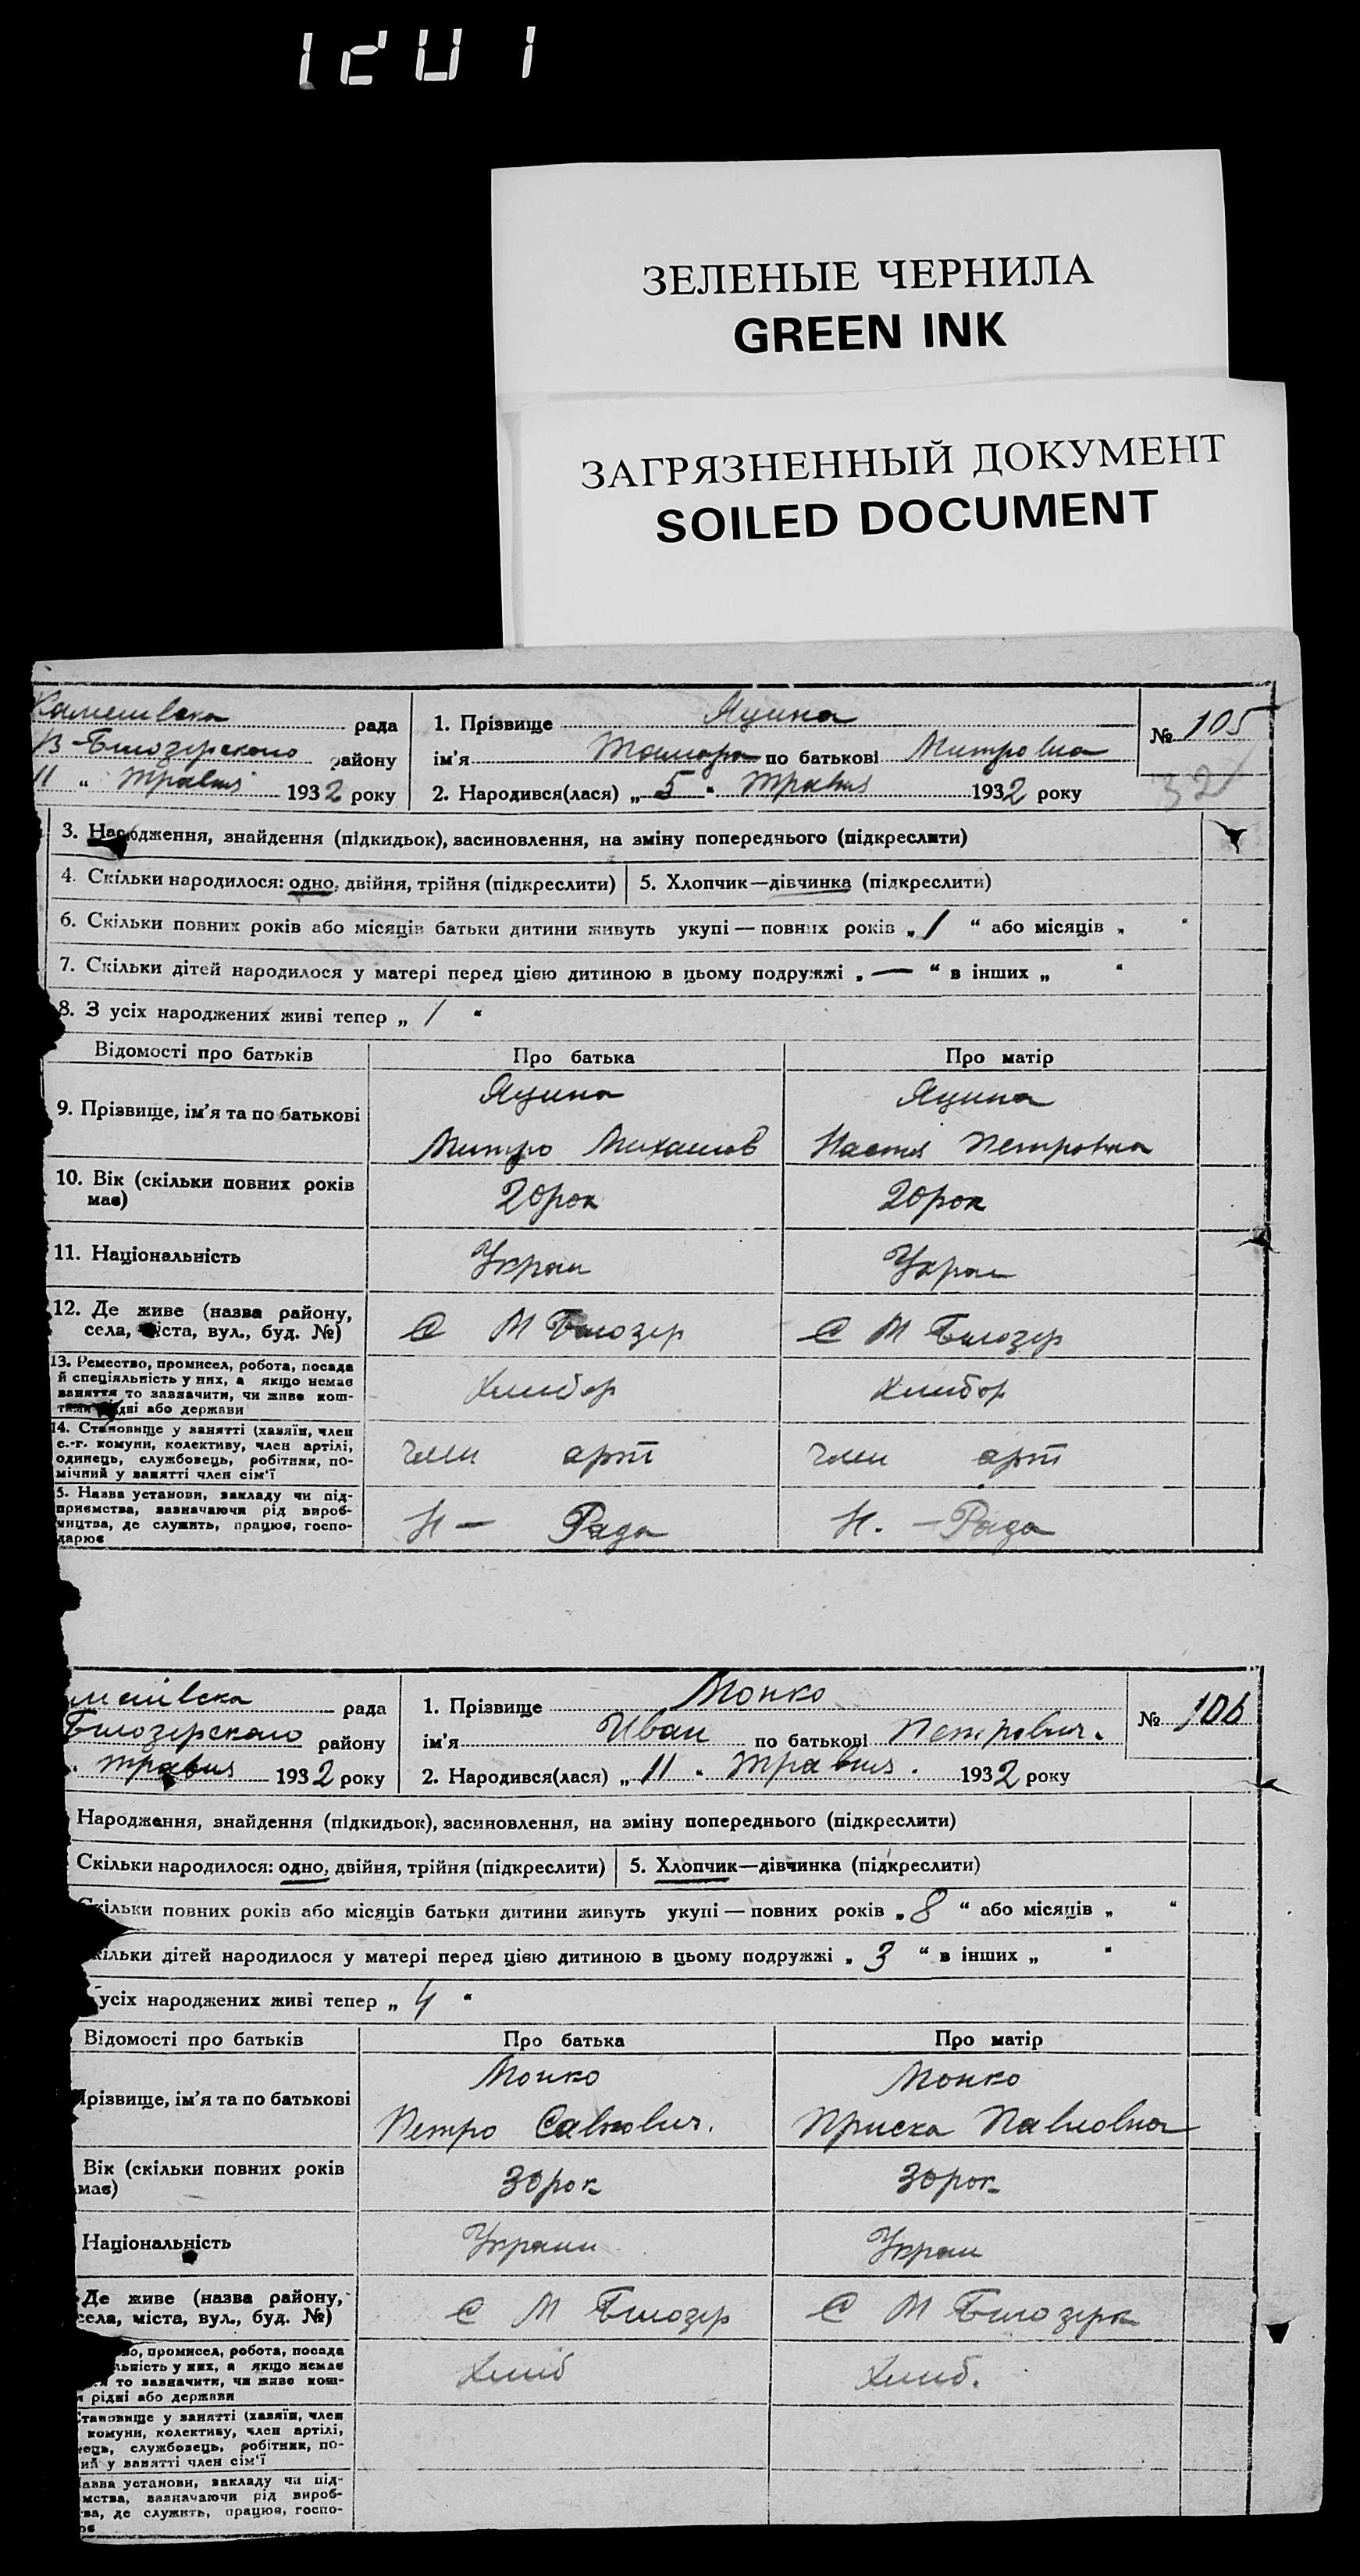 1201
ЗЕЛЕНЫЕ ЧЕРНИЛА
GREEN INK
ЗАГРЯЗНЕННЫЙ ДОКУМЕНТ
SOILED DOCUMENT
рада
В-Білозерського району
11 " травня 1932 року
1. Прізвище Яцина
ім'я Тамара по батькові Митровна
2. Народився(лася) „ 5 " травня 1932 року
№ 105
32
3. Народження, знайдення (підкидьок), засиновлення, на зміну попереднього (підкреслити)
4. Скільки народилося: одно, двійня, трійня (підкреслити) 5. Хлопчик—дівчинка (підкреслити)
6. Скільки повних років або місяців батьки дитини живуть укупі — повних років „ 1 " або місяців „ "
7. Скільки дітей народилося у матері перед цією дитиною в цьому подружжі „ — " в інших „ "
8. З усіх народжених живі тепер „ 1 "
Відомості про батьків Про батька Про матір
9. Прізвище, ім'я та по батькові
Яцина Яцина
Митро Михайлов Настя Петровна
10. Вік (скільки повних років має) 20 рок 20 рок
11. Національність Украи Украи
12. Де живе (назва району, села, міста, вул., буд. №) С М Білозер С М Білозер
13. Ремество, промисел, робота, посада
й спеціяльність у них, а якщо немає
заняття то зазначити, чи живе кош-
тами рідні або держави
Хлибор Хлибор
14. Становище у занятті (хазяїн, член
с.-г. комуни, колективу, член артілі,
одинець, службовець, робітник, по-
мічний у занятті член сім'ї
член арт член арт
5. Назва установи, закладу чи під-
приємства, зазначаючи рід вироб-
ництва, де служить, працює, госпо-
дарює
Н — Рада Н. — Рада
рада
Білозерського району
травня 1932 року
1. Прізвище Мопко
ім'я Иван по батькові Петрович.
2. Народився(лася) „ 11 " травня. 1932 року
№ 106
Народження, знайдення (підкидьок), засиновлення, на зміну попереднього (підкреслити)
Скільки народилося: одно, двійня, трійня (підкреслити) 5. Хлопчик—дівчинка (підкреслити)
Скільки повних років або місяців батьки дитини живуть укупі — повних років „ 8 " або місяців „ "
кільки дітей народилося у матері перед цією дитиною в цьому подружжі „ 3 " в інших „ "
усіх народжених живі тепер „ 4 "
Відомості про батьків Про батька Про матір
Прізвище, ім'я та по батькові
Мопко Мопко
Петро Савкович. Приска Павловна
Вік (скільки повних років має) 30 рок 30 рок
Національність Украин Украи
Де живе (назва району, села, міста, вул., буд. №) С М Білозер С М Білозерк
во, промисел, робота, посада
льність у них, а якщо немає
я то зазначити, чи живе кош-
и рідні або держави
Хлиб Хлиб.
Становище у занятті (хазяїн, член
комуни, колективу, член артілі,
нець, службовець, робітник, по-
ний у занятті член сім'ї
азва установи, закладу чи під-
мства, зазначаючи рід вироб-
ва, де служить, працює, госпо-